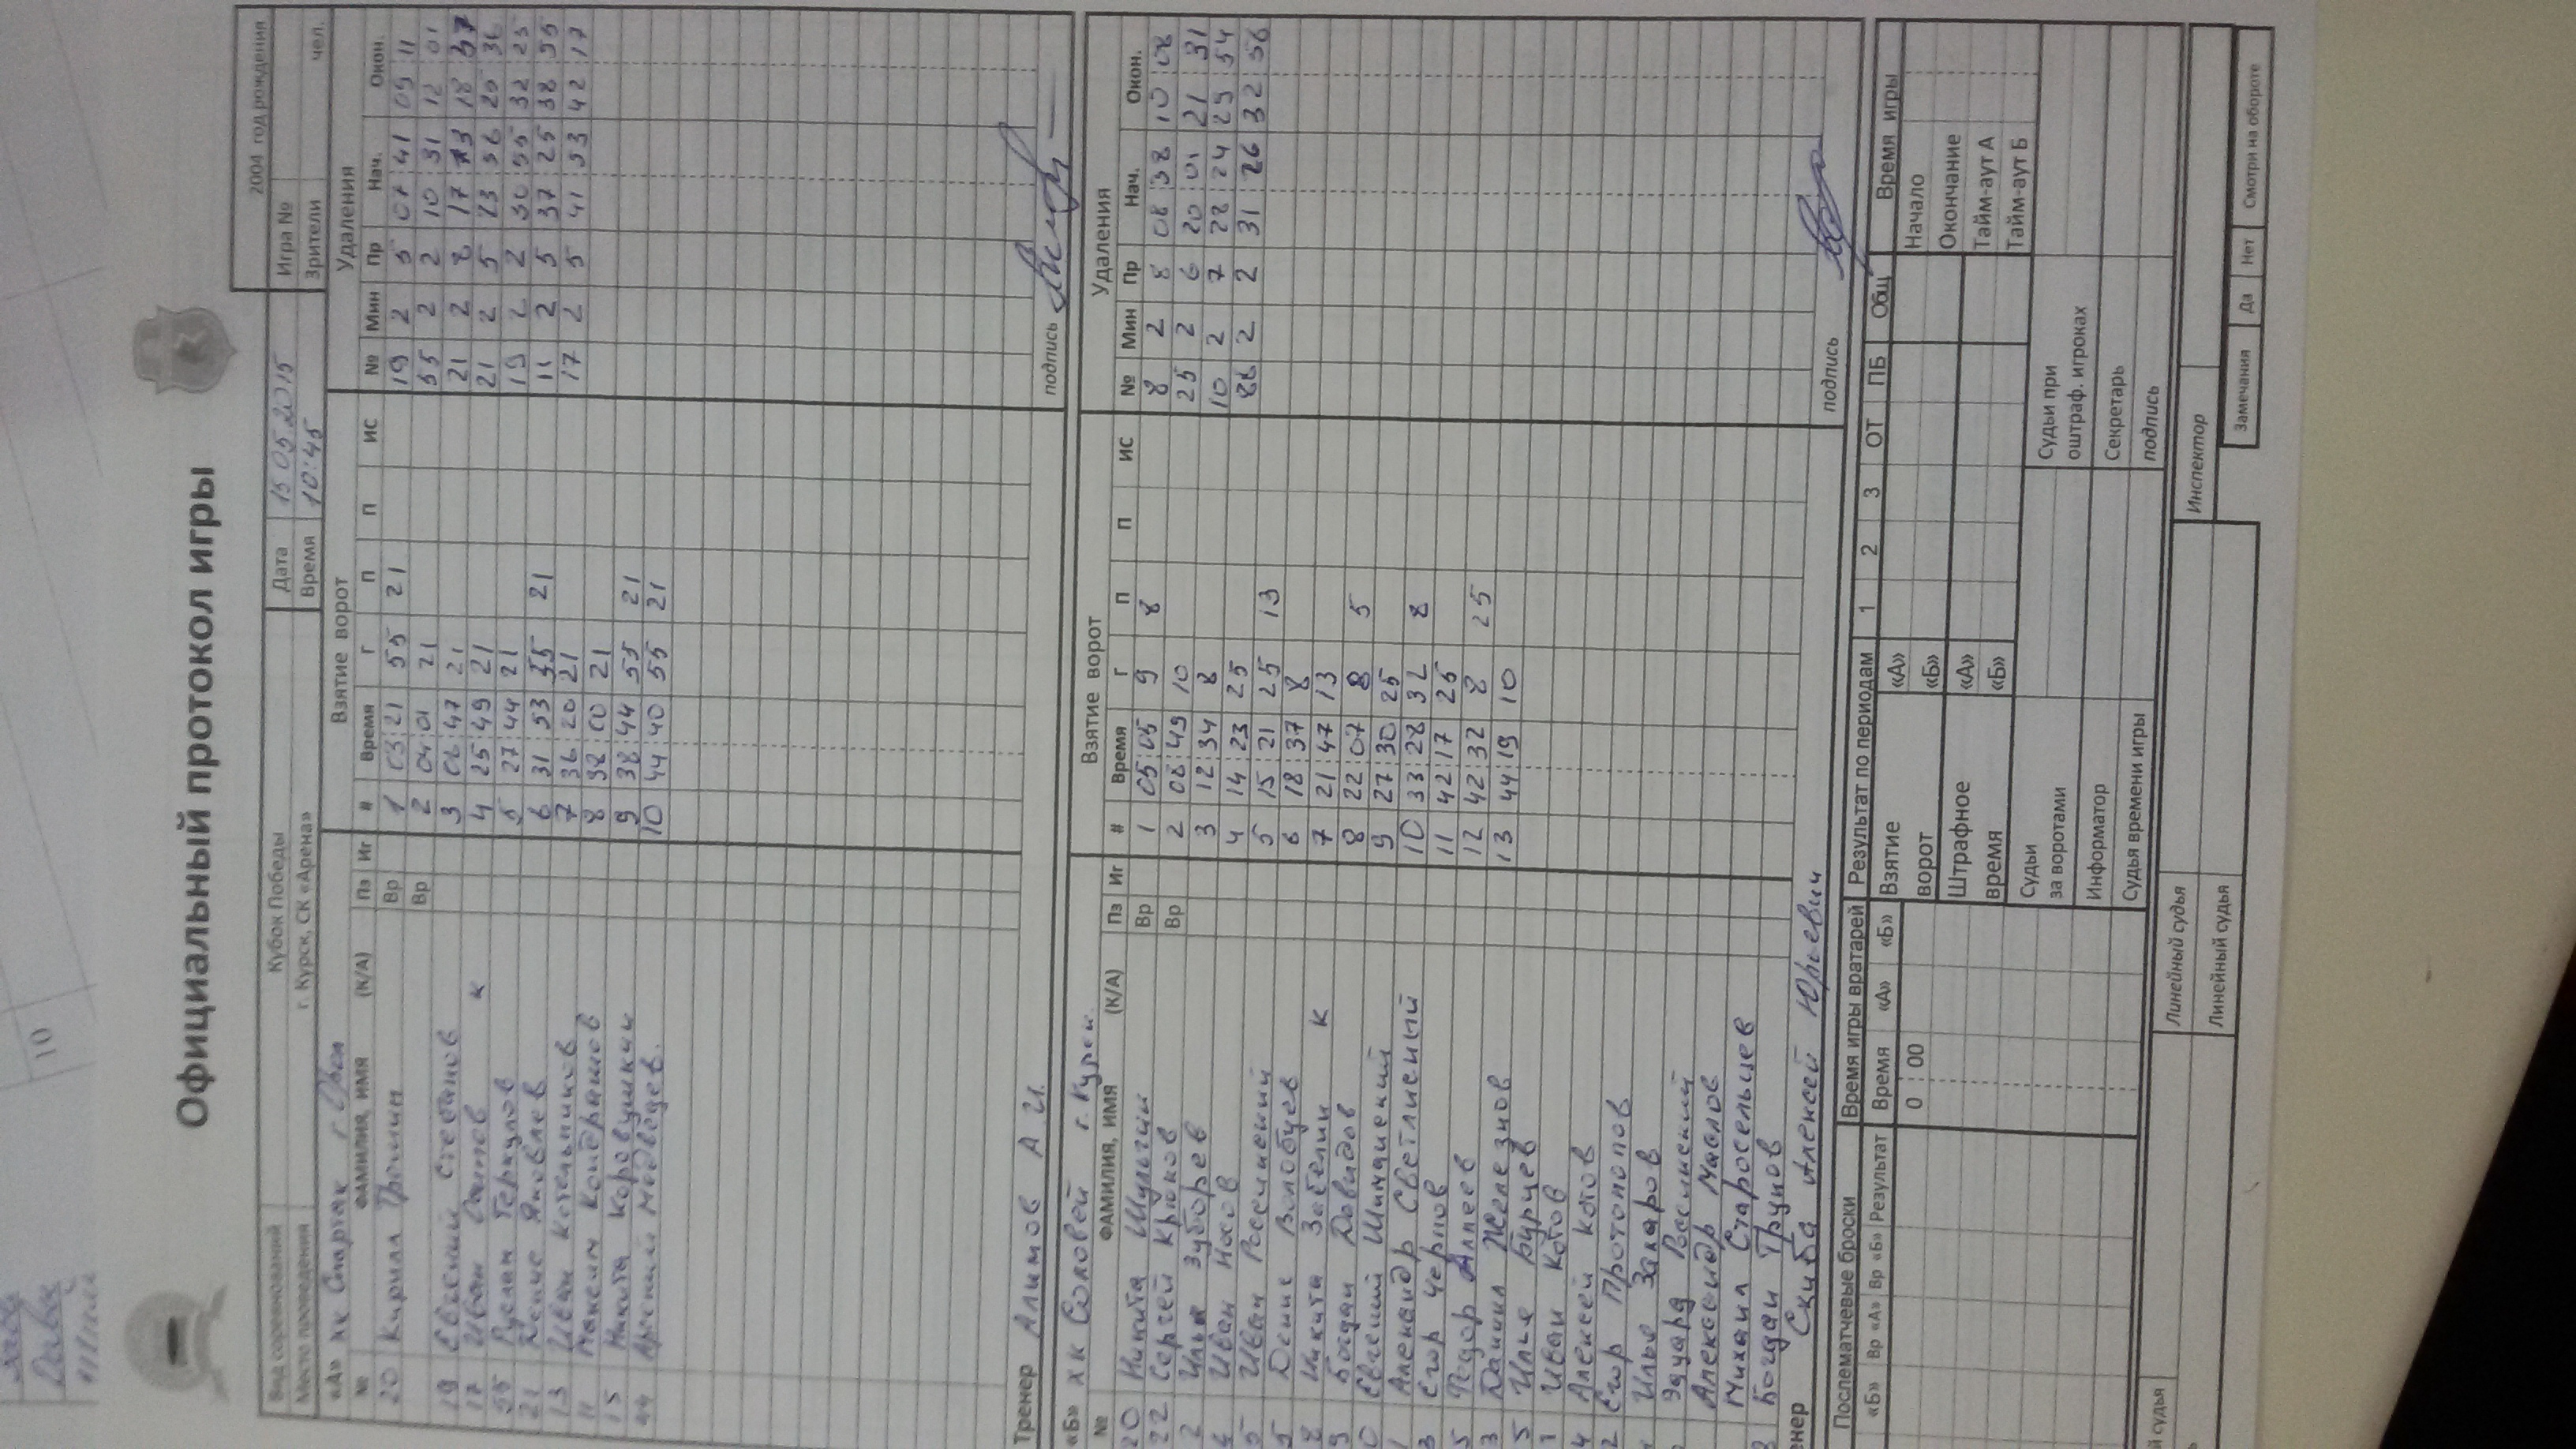 Официальный протокол игры
2004 год рождения
Вид соревнований Кубок Победы Дата 15 05 2015 Игра №
Место проведения г. Курск, СК «Арена» Время 10:45 Зрители чел.
«А» ХК Спартак г. Орел Взятие ворот Удаления
№ ФАМИЛИЯ, ИМЯ (К/А) Пз Иг # Время Г П П ИС № Мин Пр Нач. Окон.
20 Кирилл Вр 1 03:21 55 21 19 2 5 07:41 09:11
Вр 2 04:01 21 55 2 2 10:31 12:01
19 Евгений 3 06:47 21 21 2 8 17:13 18
17 Иван К 4 25:49 21 21 2 5 23:56 25:36
55 Руслан Теркулов 5 27:44 21 19 2 2 30:55 32:25
21 Денис Яковлев 6 31:53 55 21 11 2 5 37:25 38:55
13 Иван Котельников 7 36:20 21 17 2 5 41:53 42:17
11 Максим Кондрашов 8 38:00 21
15 Никита Коровушкин 9 38:44 55 21
44 Арсений Медведев. 10 44:40 55 21
Тренер Алимов А.И. подпись
«Б» ХК Соловей г. Курск. Взятие ворот Удаления
№ ФАМИЛИЯ, ИМЯ (К/А) Пз Иг # Время Г П П ИС № Мин Пр Нач. Окон.
20 Никита Шульгин Вр 1 05:05 9 8 8 2 8 08:38 10:08
22 Сергей Крюков Вр 2 08:49 10 25 2 6 20:01 21:31
2 Илья Зуборев 3 12:34 8 10 2 7 22:24 23:54
Иван Носов 4 14:23 25 88 2 2 31:26 32:56
5 Иван Россинский 5 15:21 25 13
5 Денис Волобуев 6 18:37 8
8 Никита Забелин К 7 21:47 13
9 Богдан Давидов 8 22:07 8 5
0 Евгений Шиндинский 9 27:30 25
Александр Светлисный 10 33:28 32 8
3 Егор Чернов 11 42:17 25
5 Федор Алпеев 12 42:32 8 25
3 Даниил Железнов 13 44:19 10
5 Илья Бурцев
1 Иван Котов
4 Алексей Котов
2 Егор Протопопов
Илья Захаров
Эдуард
Александр Маслов
Михаил Старосельцев
Богдан Трунов
енер Скиба Алексей Юрьевич подпись
Послематчевые броски Время игры вратарей Результат по периодам 1 2 3 ОТ ПБ Общ Время игры
«Б» Вр «А» Вр «Б» Результат Время «А» «Б» Взятие ворот «А» «Б» Начало
0 : 00 Штрафное время «А» «Б» Окончание
Тайм-аут А
Тайм-аут Б
Судьи за воротами Судьи при оштраф. игроках
Информатор Секретарь
Судья времени игры подпись
й судья Линейный судья Инспектор
Линейный судья Замечания Да Нет Смотри на обороте
10